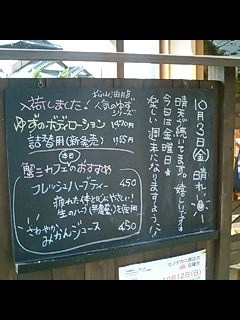 10月3日(金)晴れ
晴天が続いてます。嬉しいです
今日は金曜日★
楽しい週末になりますように
入荷しました!
人気のゆず
シリーズ
ゆずのボディローション 1470円
詰替用(新発売) 1155円
本日
蟹三カフェのおすすめ
フレッシュハーブティー 450
疲れた体と心にやさしい!
生のハーブ(無農薬)を使用
さわやか
みかんジュース 450
10月12日(日)